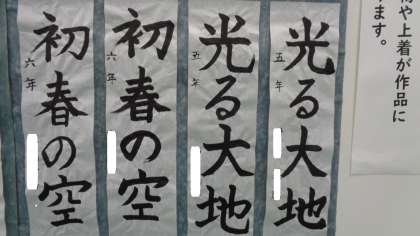 物や上着が作品に
ます。
光る大地
五年
光る大地
五年
初春の空
六年
初春の空
六年